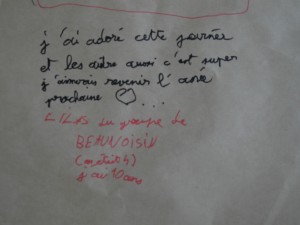 j'ai adoré cette journée
et les autre aussi c'est super
j'aimrais revenir l'anée
prochaine ♡...
LILAS du groupe de
BEAUVOISIN
(on était 4)
j'ai 10 ans